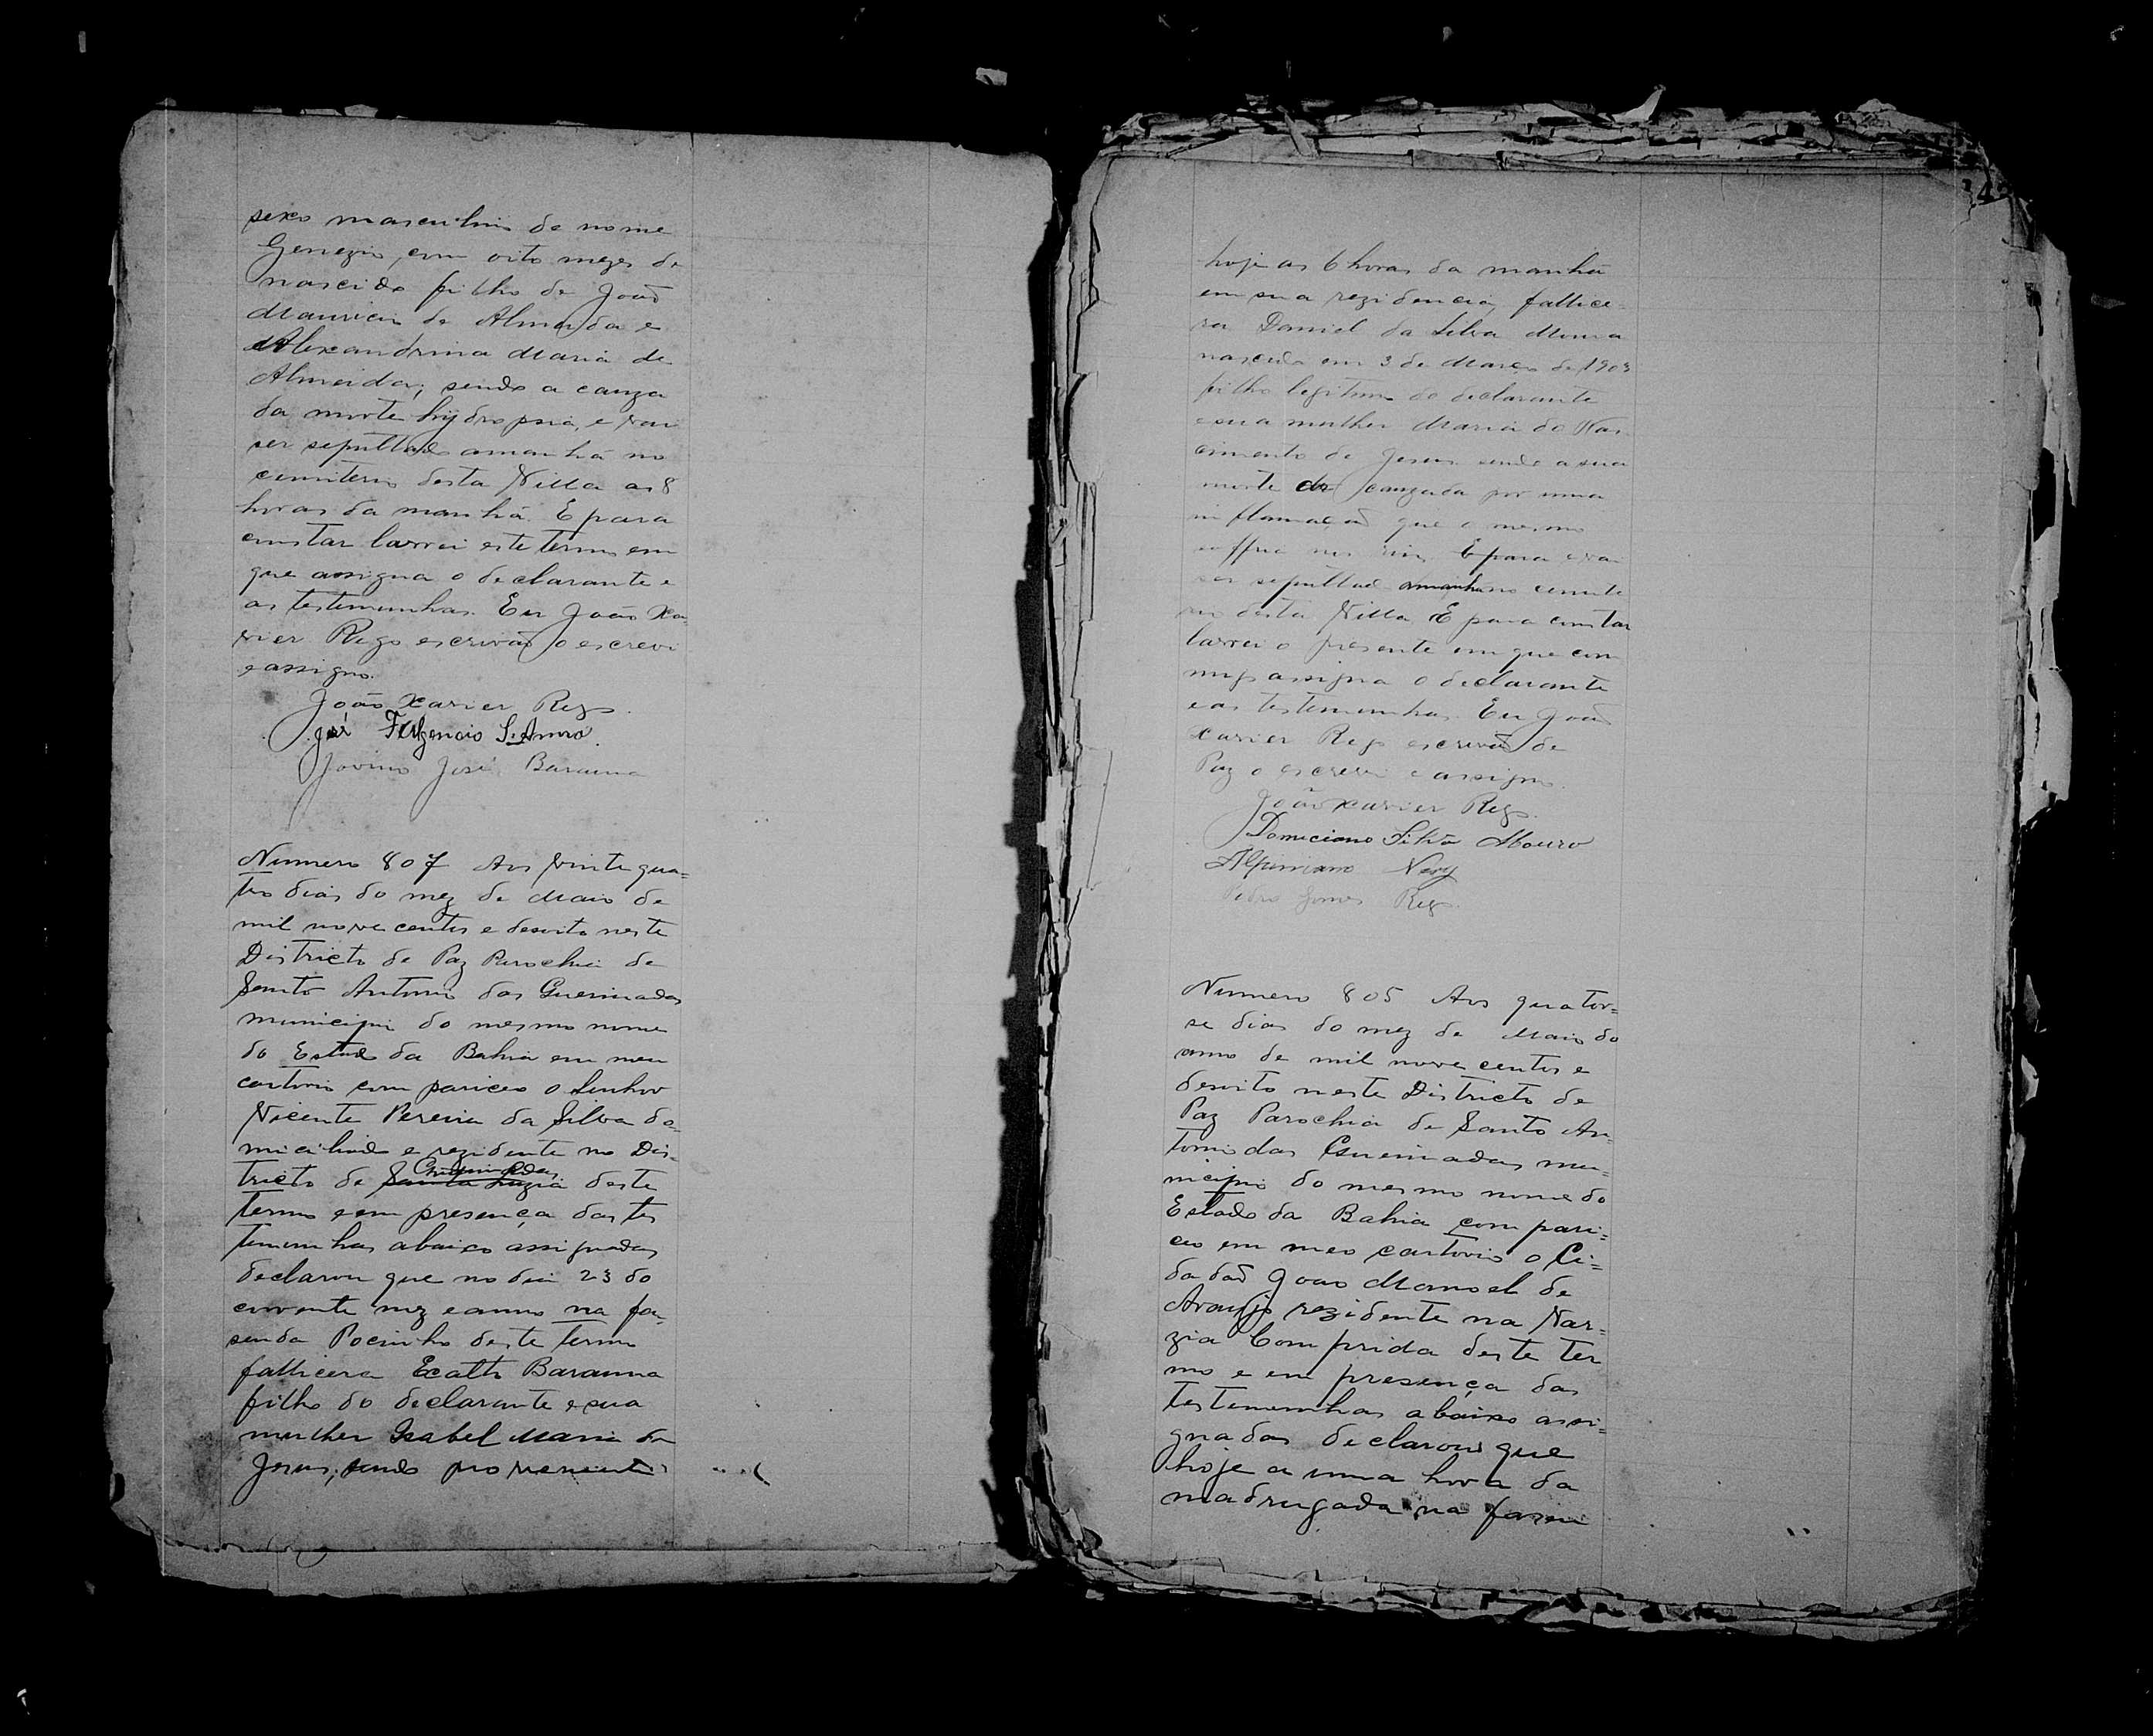 sexo masculino de nome
Genezio, com oito mezes de
nascido filho de João
Mauricio de Almeida e
Alexandrina Maria de
Almeida, sendo a cauza
da morte hydropsia, e vai
ser sepultado amanhã no
cemiterio desta Villa as 8
horas da manhã. E para
constar lavrei este termo em
que assigna o declarante e
as testemunhas. Eu João Xa
vier Rego escrivão o escrevi
e assigno.
João Xavier Rego.
José Fulgencio
Jovino José Barauna
Numero 807 Aos vinte qua=
tro dias do mez de Maio de
mil nove centos e desoito neste
Districto de Paz Parochia de
Santo Antonio das Queimadas
municipio do mesmo nome
do Estado da Bahia em meu
cartorio com pariceo o Senhor
Vicente Pereira da Silva do=
miciliado e rezidente no Dis=
Queimadas
tricto de Santa Luzia deste
termo e em presença das tes
temunhas abaixo assignadas
declarou que no dia 23 do
corrente mez e anno na fa=
senda Pocinho deste termo
fallicera Barauna
filho do declarante e sua
mulher Izabel Maria de
Jesus, sendo proveniente
hoje as 6 horas da manhã
em sua rezidencia, fallice=
ra Daniel da Silva Moura
nascido em 3 de Março de 1903
filho legitimo do declarante
e sua mulher Maria do Nas
cimento de Jesus sendo a sua
morte cauzada por uma
inflamação que o mesmo
soffria nos rins E para e vai
ser sepultado amanhã no cemite
rio desta Villa E para constar
lavrei o presente em que com
migo assigna o declarante
e as testemunhas. Eu João
Xavier Rego escrivão de
Paz o escrevi e assigno.
João Xavier Rego.
Domiciano Silva Mouro
Nery
Pedro Gomes Rego.
Numero 805 Aos quator=
se dias do mez de Maio do
anno de mil nove centos e
desoito neste Districto de
Paz Parochia de Santo An
tonio das Queimadas mu=
nicipio do mesmo nome do
Estado da Bahia com pari=
ceo em meo cartorio o Ci=
dadão João Manoel de
Araujo rezidente na Var=
zia Comprida deste ter
mo e em presença das
testemunhas abaixo assi=
gnadas declarou que
hoje a uma hora da
madrugada na fasen